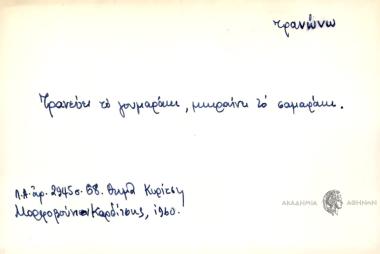 τρανώνω
Τρανεύει τὸ γουμαράκι, μικραίνει τὸ σαμαράκι.
Λ.Α. ἀρ. 2945 σ. 68. Θωμᾶ Κυρίτση
Μορφοβούνιον Καρδίτσης, 1960.
ΑΚΑΔΗΜΙΑ ΑΘΗΝΩΝ